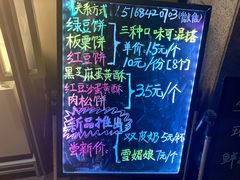 联系方式: 15168420703(微信)
绿豆饼
板栗饼 三种口味可混搭
红豆饼 单价:1.5元/个
10元/份[8个]
黑芝麻蛋黄酥
红豆沙蛋黄酥 3.5元/个
肉松饼
新品推出
尝新价: 双皮奶5元/杯
雪媚娘 元/个